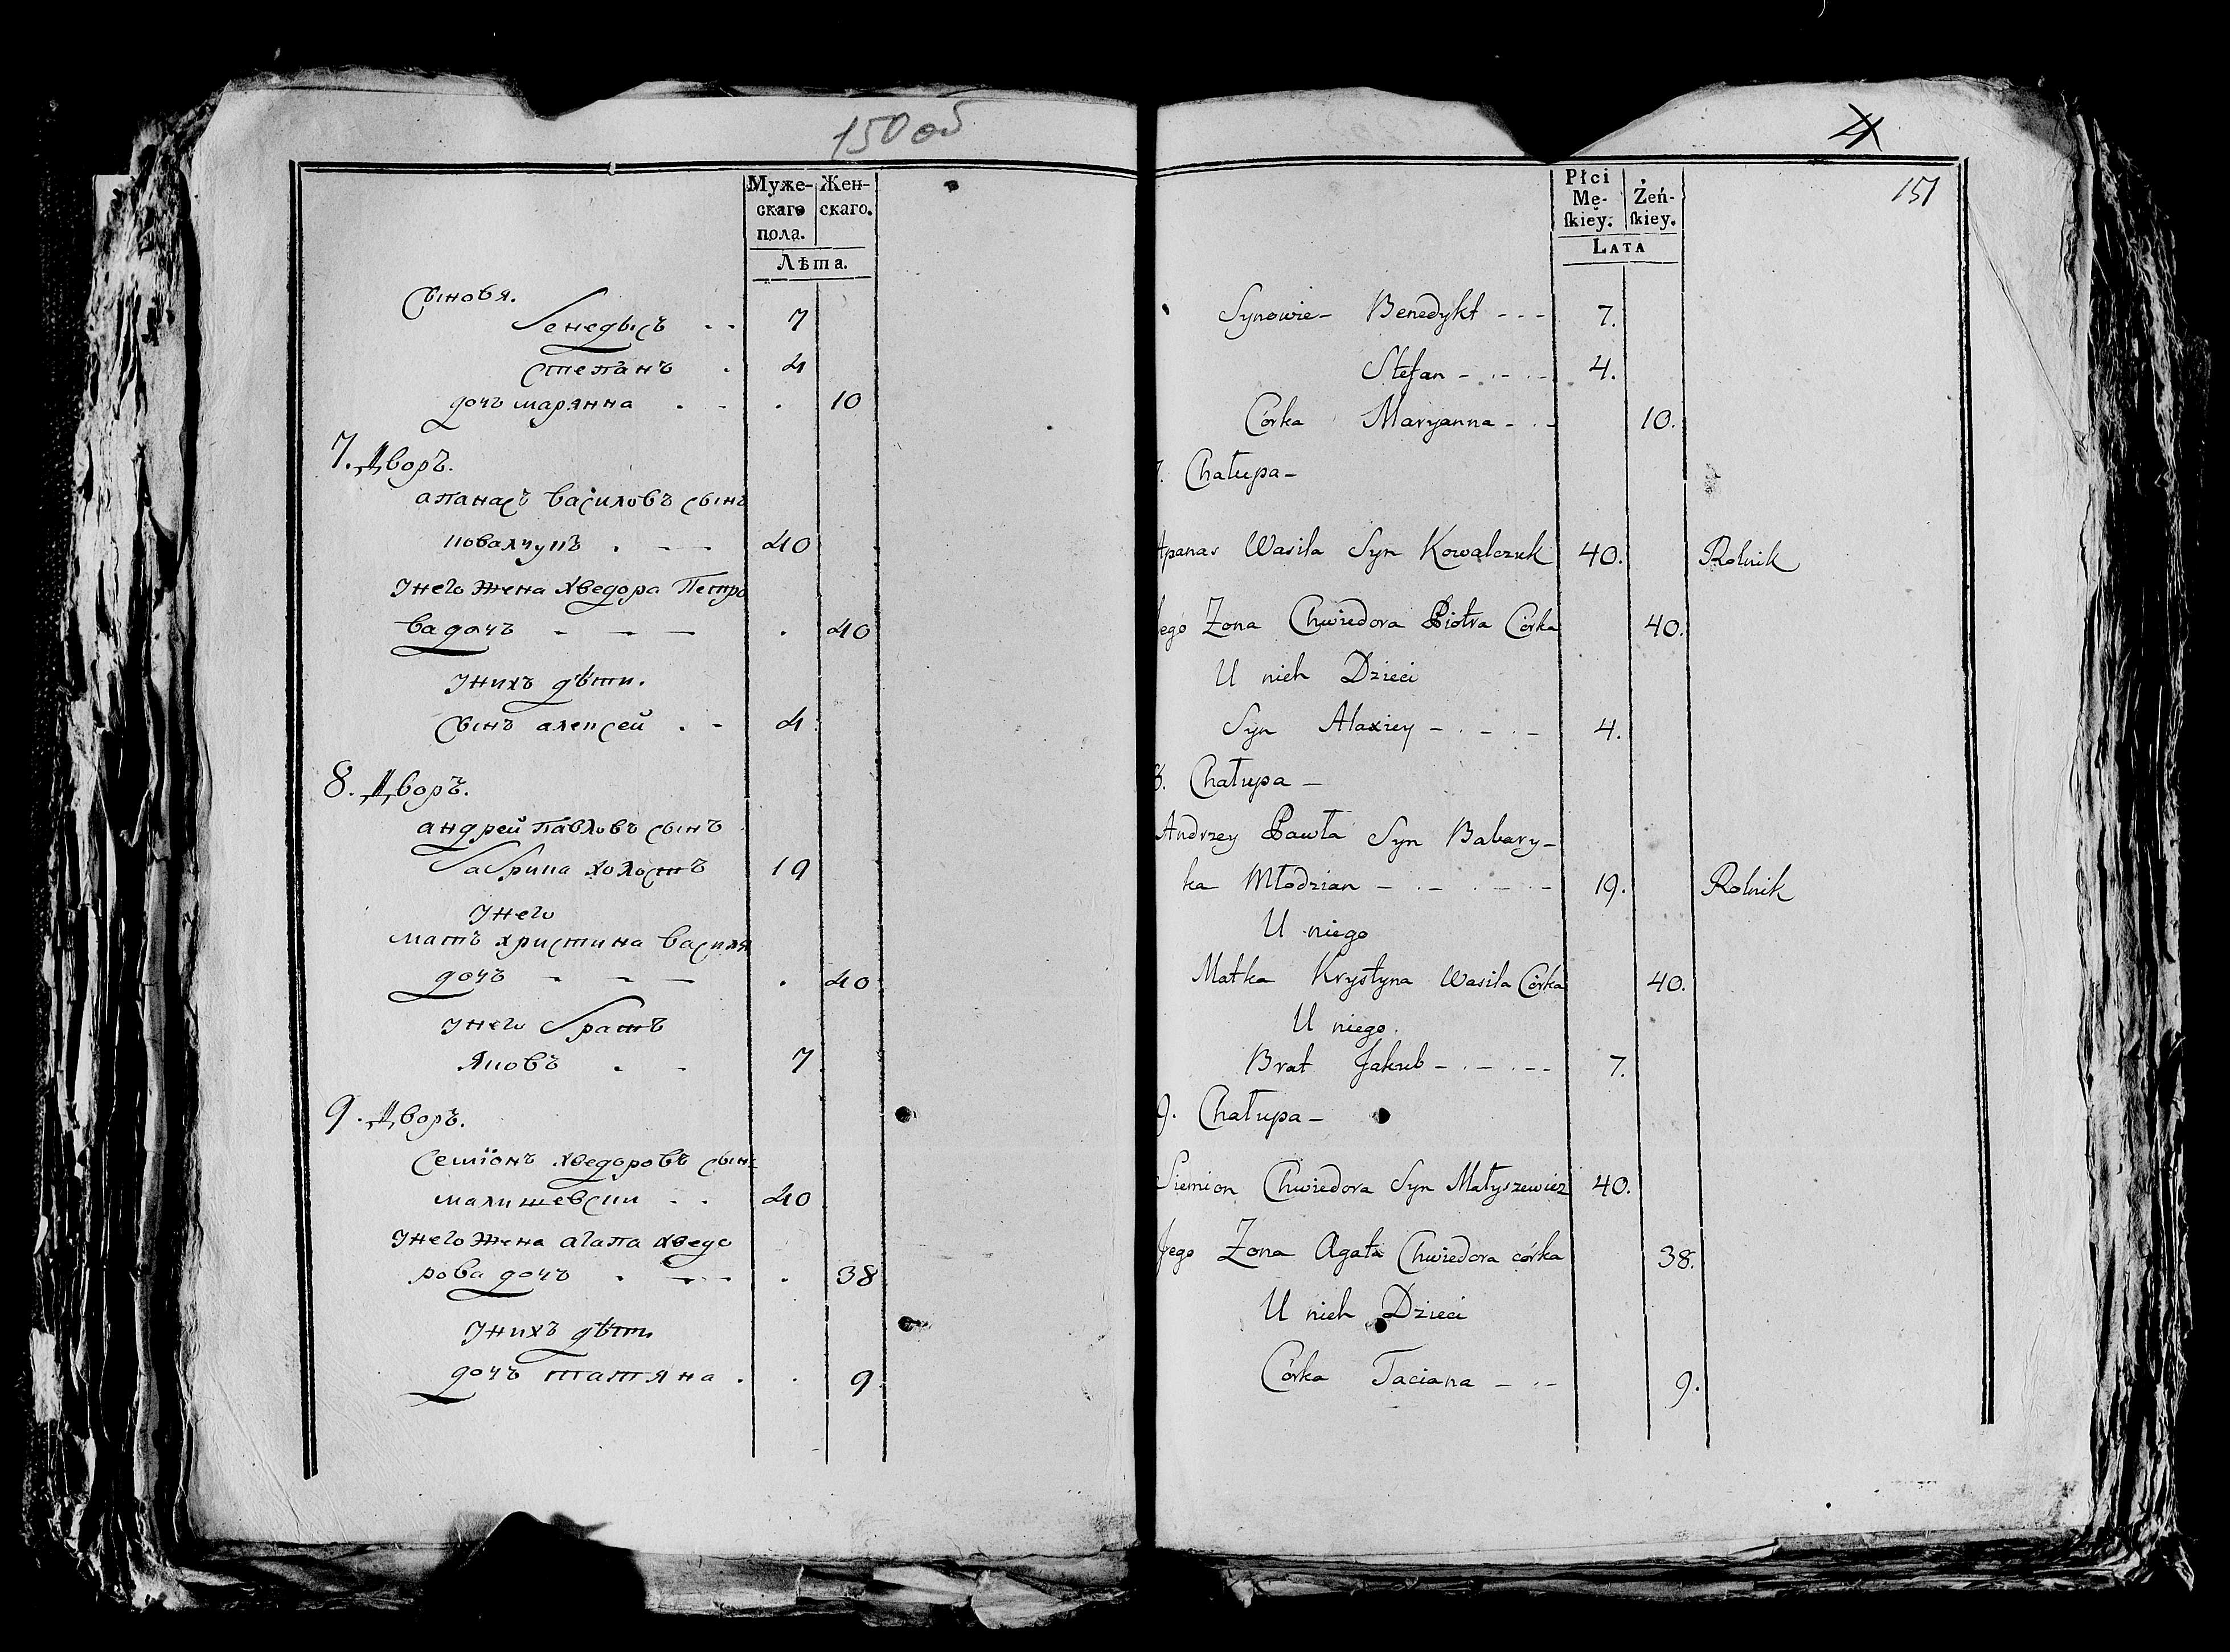 150 об
Муже- Жен-
скаго скаго.
пола.
Лѣта.
Сыновя.
Бенедысъ - - 7
Степанъ . 4
дочъ марянна . - . 10
7. Дворъ.
апанасъ василовъ сынъ
ковалчукъ . - — 40
Унего Жена хведора Петро
ва дочъ - - — . 40
Унихъ дѣти.
Сынъ алексей . - 4
8. Дворъ.
андрей павловъ сынъ
бабрика холостъ 19
Унего
мать христина василя
дочъ - - — . 40
Унего братъ
Яковъ . - 7
9. Дворъ.
Семіонъ хведоровъ сынъ
малишевски - . 40
Унего Жена агапа хведо
рова дочъ . - - - . 38
Унихъ дѣти
дочъ татяна . . 9
151
Płci
Mę- Żeń-
skiey. skiey.
LATA
Synowie - Benedykt - - - 7.
Stefan - . - . - 4.
Córka Maryanna - . - 10.
7. Chałupa -
Apanas Wasila Syn Kowalczuk 40. Rolnik
Jego Zona Chwiedora Piotra Córka 40.
U nich Dzieci
Syn Alaxiey - . - . - 4.
8. Chałupa -
Andrzey Pawła Syn Babary-
ka Młodzian - . - . - . - 19. Rolnik
U niego
Matka Krystyna Wasila Córka 40.
U niego.
Brat Jakub - . - . - - 7.
9. Chałupa -
Siemion Chwiedora Syn Małyszewicz 40.
Jego Zona Agata Chwiedora córka 38.
U nich Dzieci
Córka Taciana - . - 9.